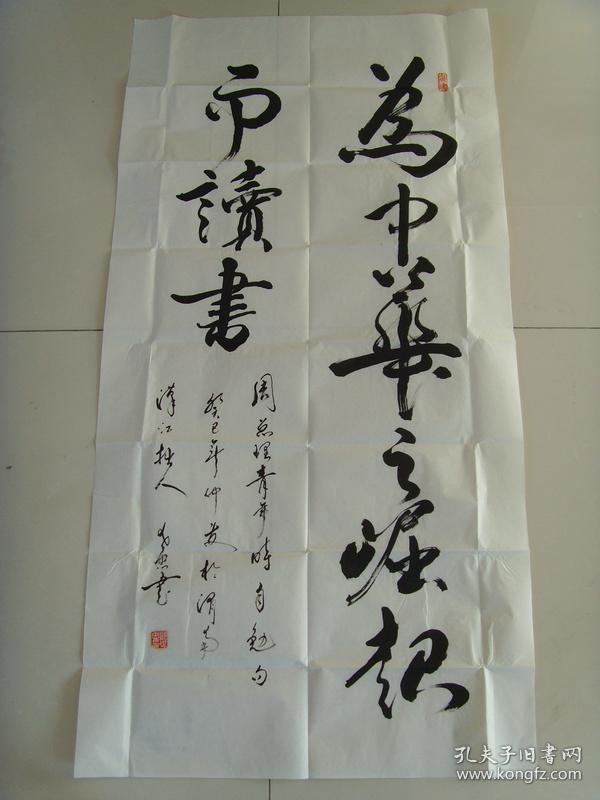 為中華之崛起
而讀書
周总理青年時自勉句
癸巳年仲夏於渭南
漢江拙人
書
孔夫子旧书网
www.kongfz.com